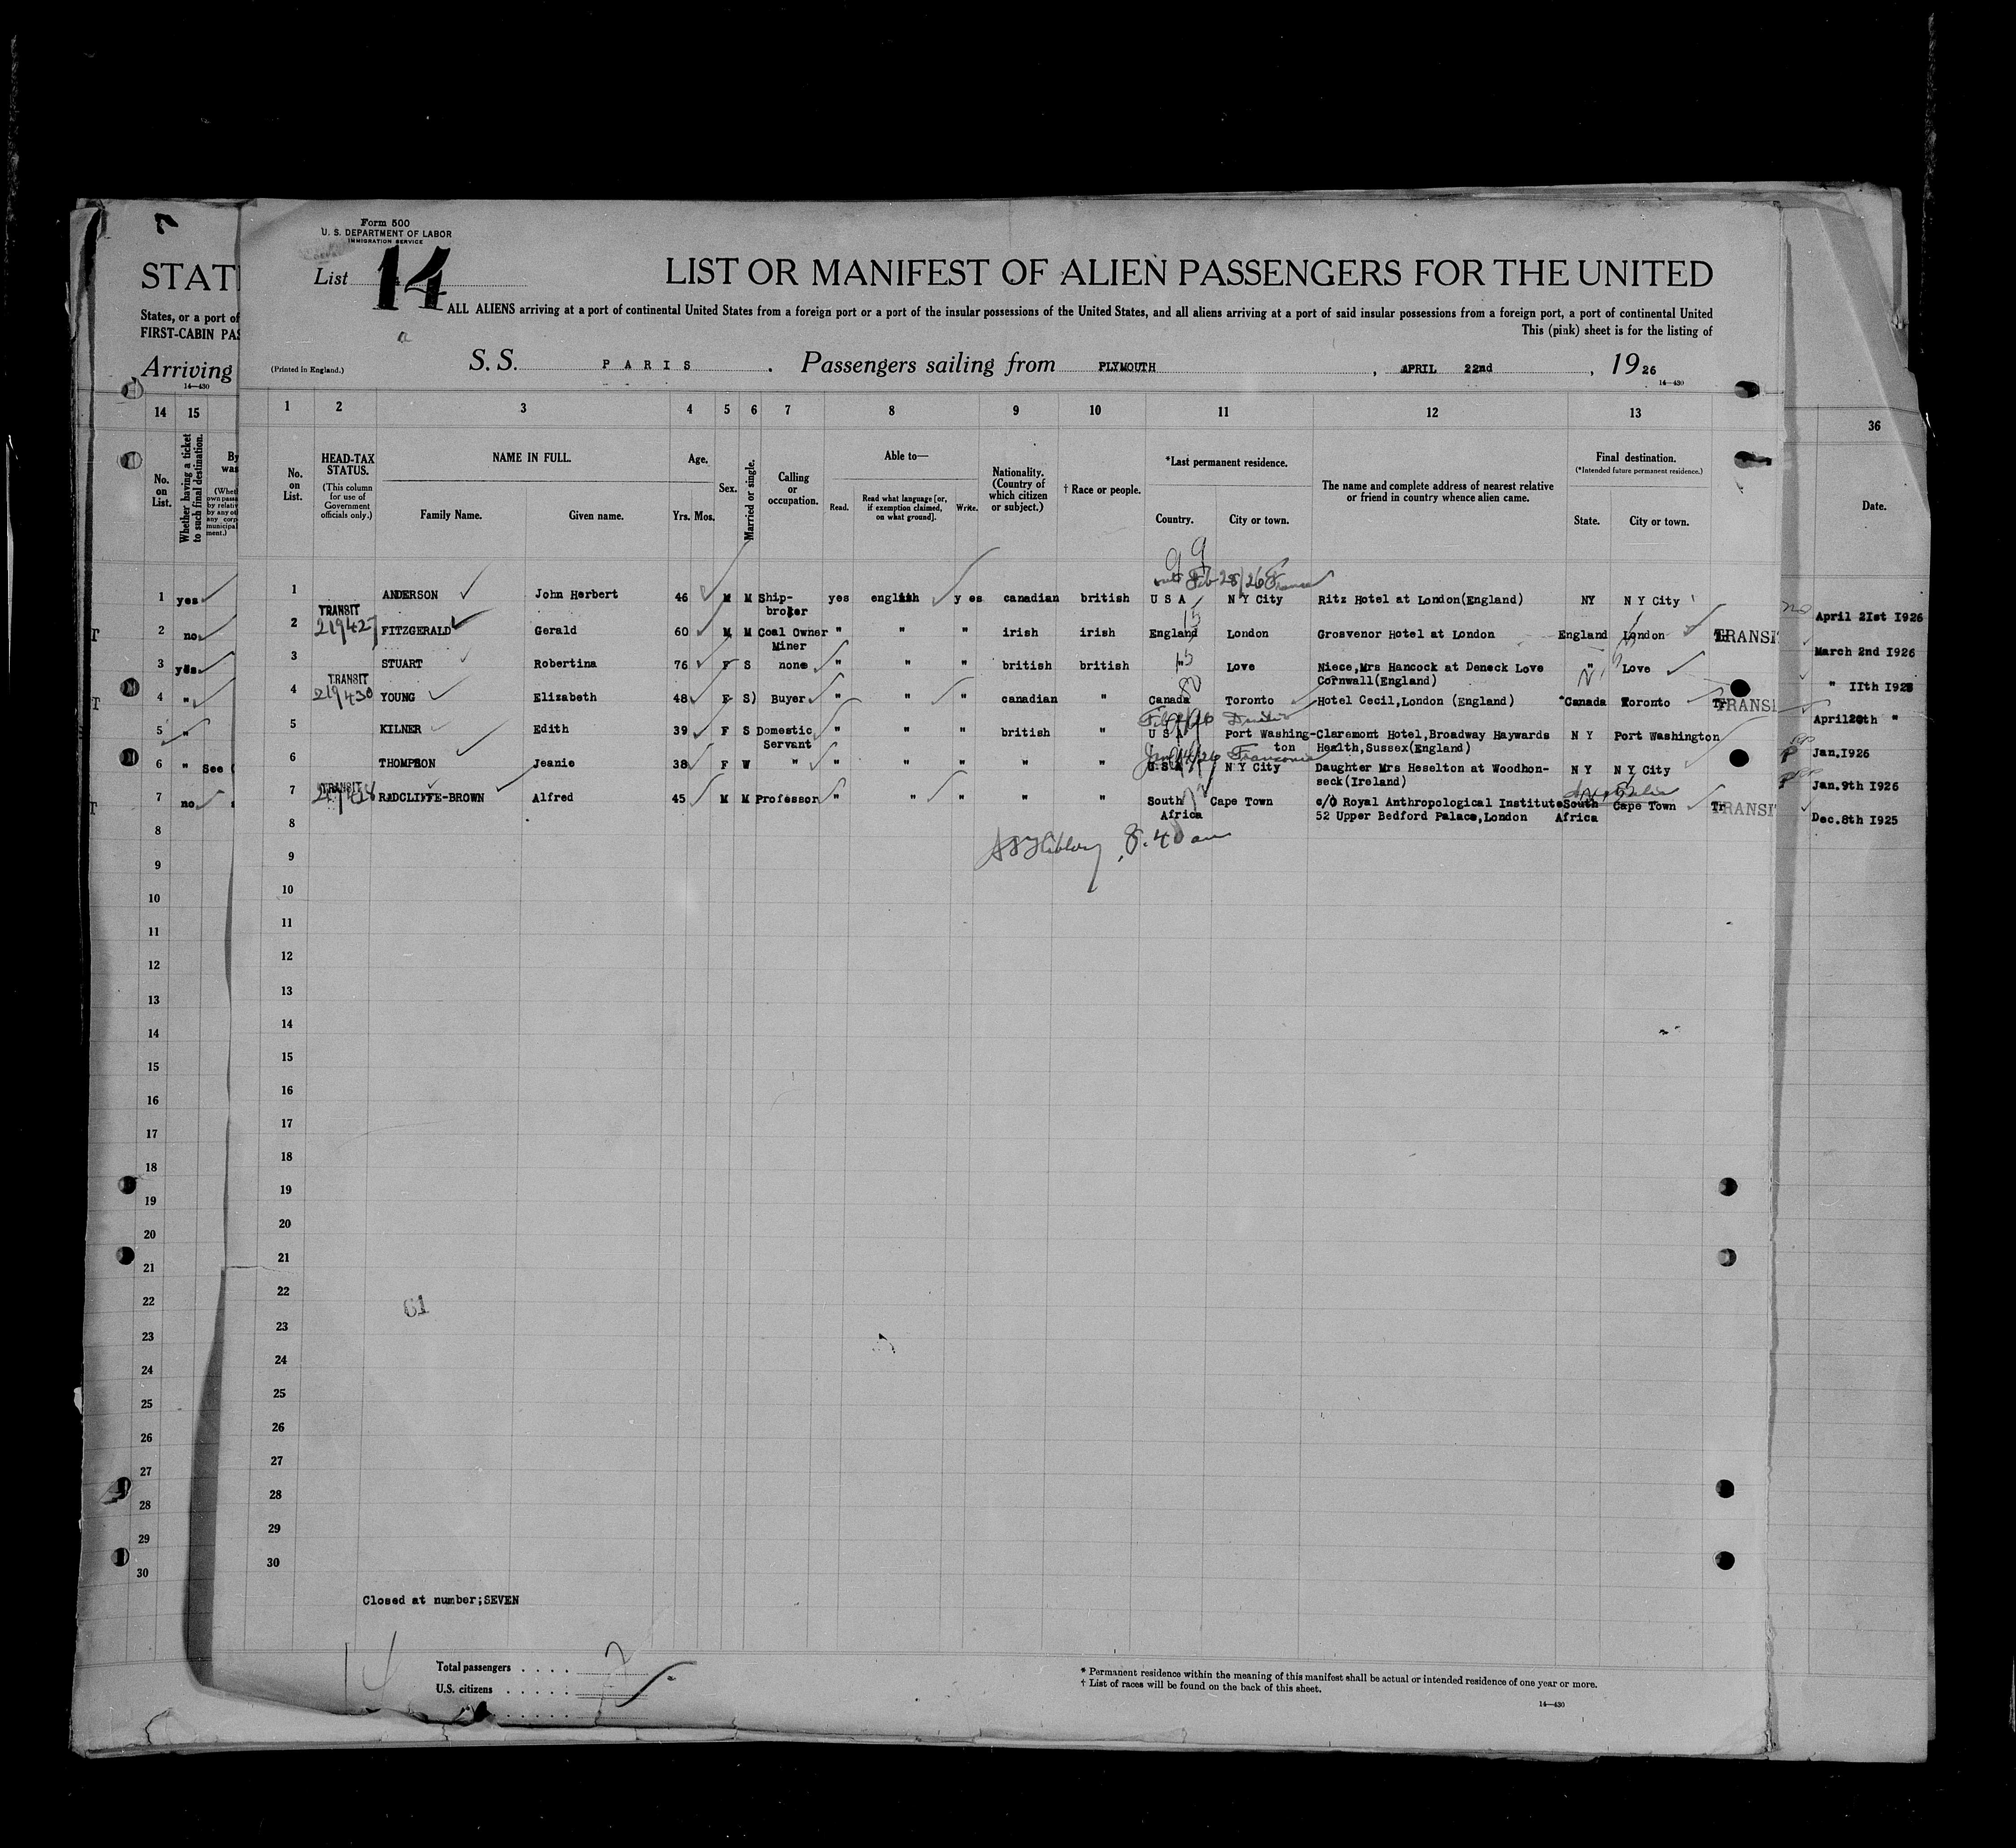 Form 500
U. S. DEPARTMENT OF LABOR
IMMIGRATION SERVICE
List 14
LIST OR MANIFEST OF ALIEN PASSENGERS FOR THE UNITED
STAT
ALL ALIENS arriving at a port of continental United States from a foreign port or a port of the insular possessions of the United States, and all aliens arriving at a port of said insular possessions from a foreign port, a port of continental United
States, or a port of
This (pink) sheet is for the listing of
FIRST-CABIN PAS
a
(Printed in England.) S. S. PARIS . Passengers sailing from PLYMOUTH , APRIL 22nd , 19 26
Arriving
14—430
14—430
14 15 1 2 3 4 5 6 7 8 9 10 11 12 13 36
No. on List. Whether having a ticket to such final destination. By
No. on List.
HEAD-TAX STATUS.
(This column for use of Government officials only.)
NAME IN FULL.
Family Name. Given name.
Age.
Yrs. Mos.
Sex.
Married or single.
Calling or occupation.
Able to—
Read. Read what language [or, if exemption claimed, on what ground]. Write.
Nationality. (Country of which citizen or subject.)
† Race or people.
*Last permanent residence.
Country. City or town.
The name and complete address of nearest relative or friend in country whence alien came.
Final destination.
(*Intended future permanent residence.)
State. City or town.
Date.
99
Feb 28/26 France
1 yes 1 ANDERSON John Herbert 46 M M Ship-broker yes english yes canadian british U S A N Y City Ritz Hotel at London(England) NY N Y City April 2Ist I926
TRANSIT
219427
15
2 no 2 FITZGERALD Gerald 60 M M Coal Owner Miner " " " irish irish England London Grosvenor Hotel at London England London TRANSIT March 2nd I926
15
3 yes 3 STUART Robertina 76 F S none " " " british british " Love Niece,Mrs Hancock at Deneck Love Cornwall(England) " Love " IIth I925
TRANSIT
219430
80
4 " 4 YOUNG Elizabeth 48 F S) Buyer " " " canadian " Canada Toronto Hotel Cecil,London (England) "Canada Toronto TRANSI April20th "
5 " 5 KILNER Edith 39 F S Domestic Servant " " " british " U S A Port Washington Claremont Hotel,Broadway Haywards Health,Sussex(England) N Y Port Washington Jan.I926
Franconia
6 " See 6 THOMPSON Jeanie 38 F W " " " " " " U S A N Y City Daughter Mrs Heselton at Woodhon-seck(Ireland) N Y N Y City Jan.9th I926
TRANSIT
Australia
7 no 7 RADCLIFFE-BROWN Alfred 45 M M Professor " " " " " South Africa Cape Town c/O Royal Anthropological Institute 52 Upper Bedford Palace,London South Africa Cape Town TRANSIT Dec.8th I925
8.40 am
8 8
9 9
10 10
11 11
12 12
13 13
14 14
15 15
16 16
17 17
18 18
19 19
20 20
21 21
22 22
61
23 23
24 24
25 25
26 26
27 27
28 28
29 29
30 30
Closed at number;SEVEN
14
Total passengers . . . . 7
U.S. citizens . . . . .
* Permanent residence within the meaning of this manifest shall be actual or intended residence of one year or more.
† List of races will be found on the back of this sheet.
14—430